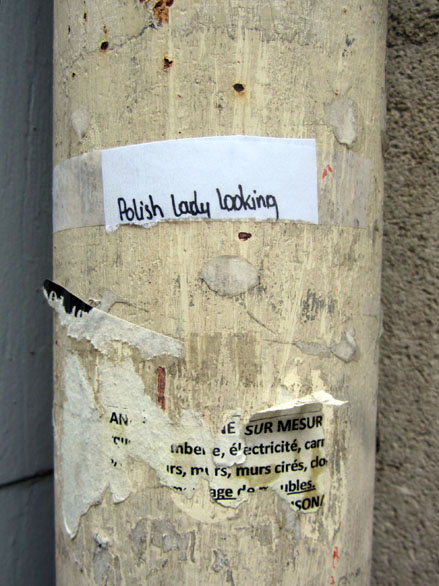 Polish lady looking
SUR MESUR
électricité, carr
murs, murs cirés, clo
age de meubles.